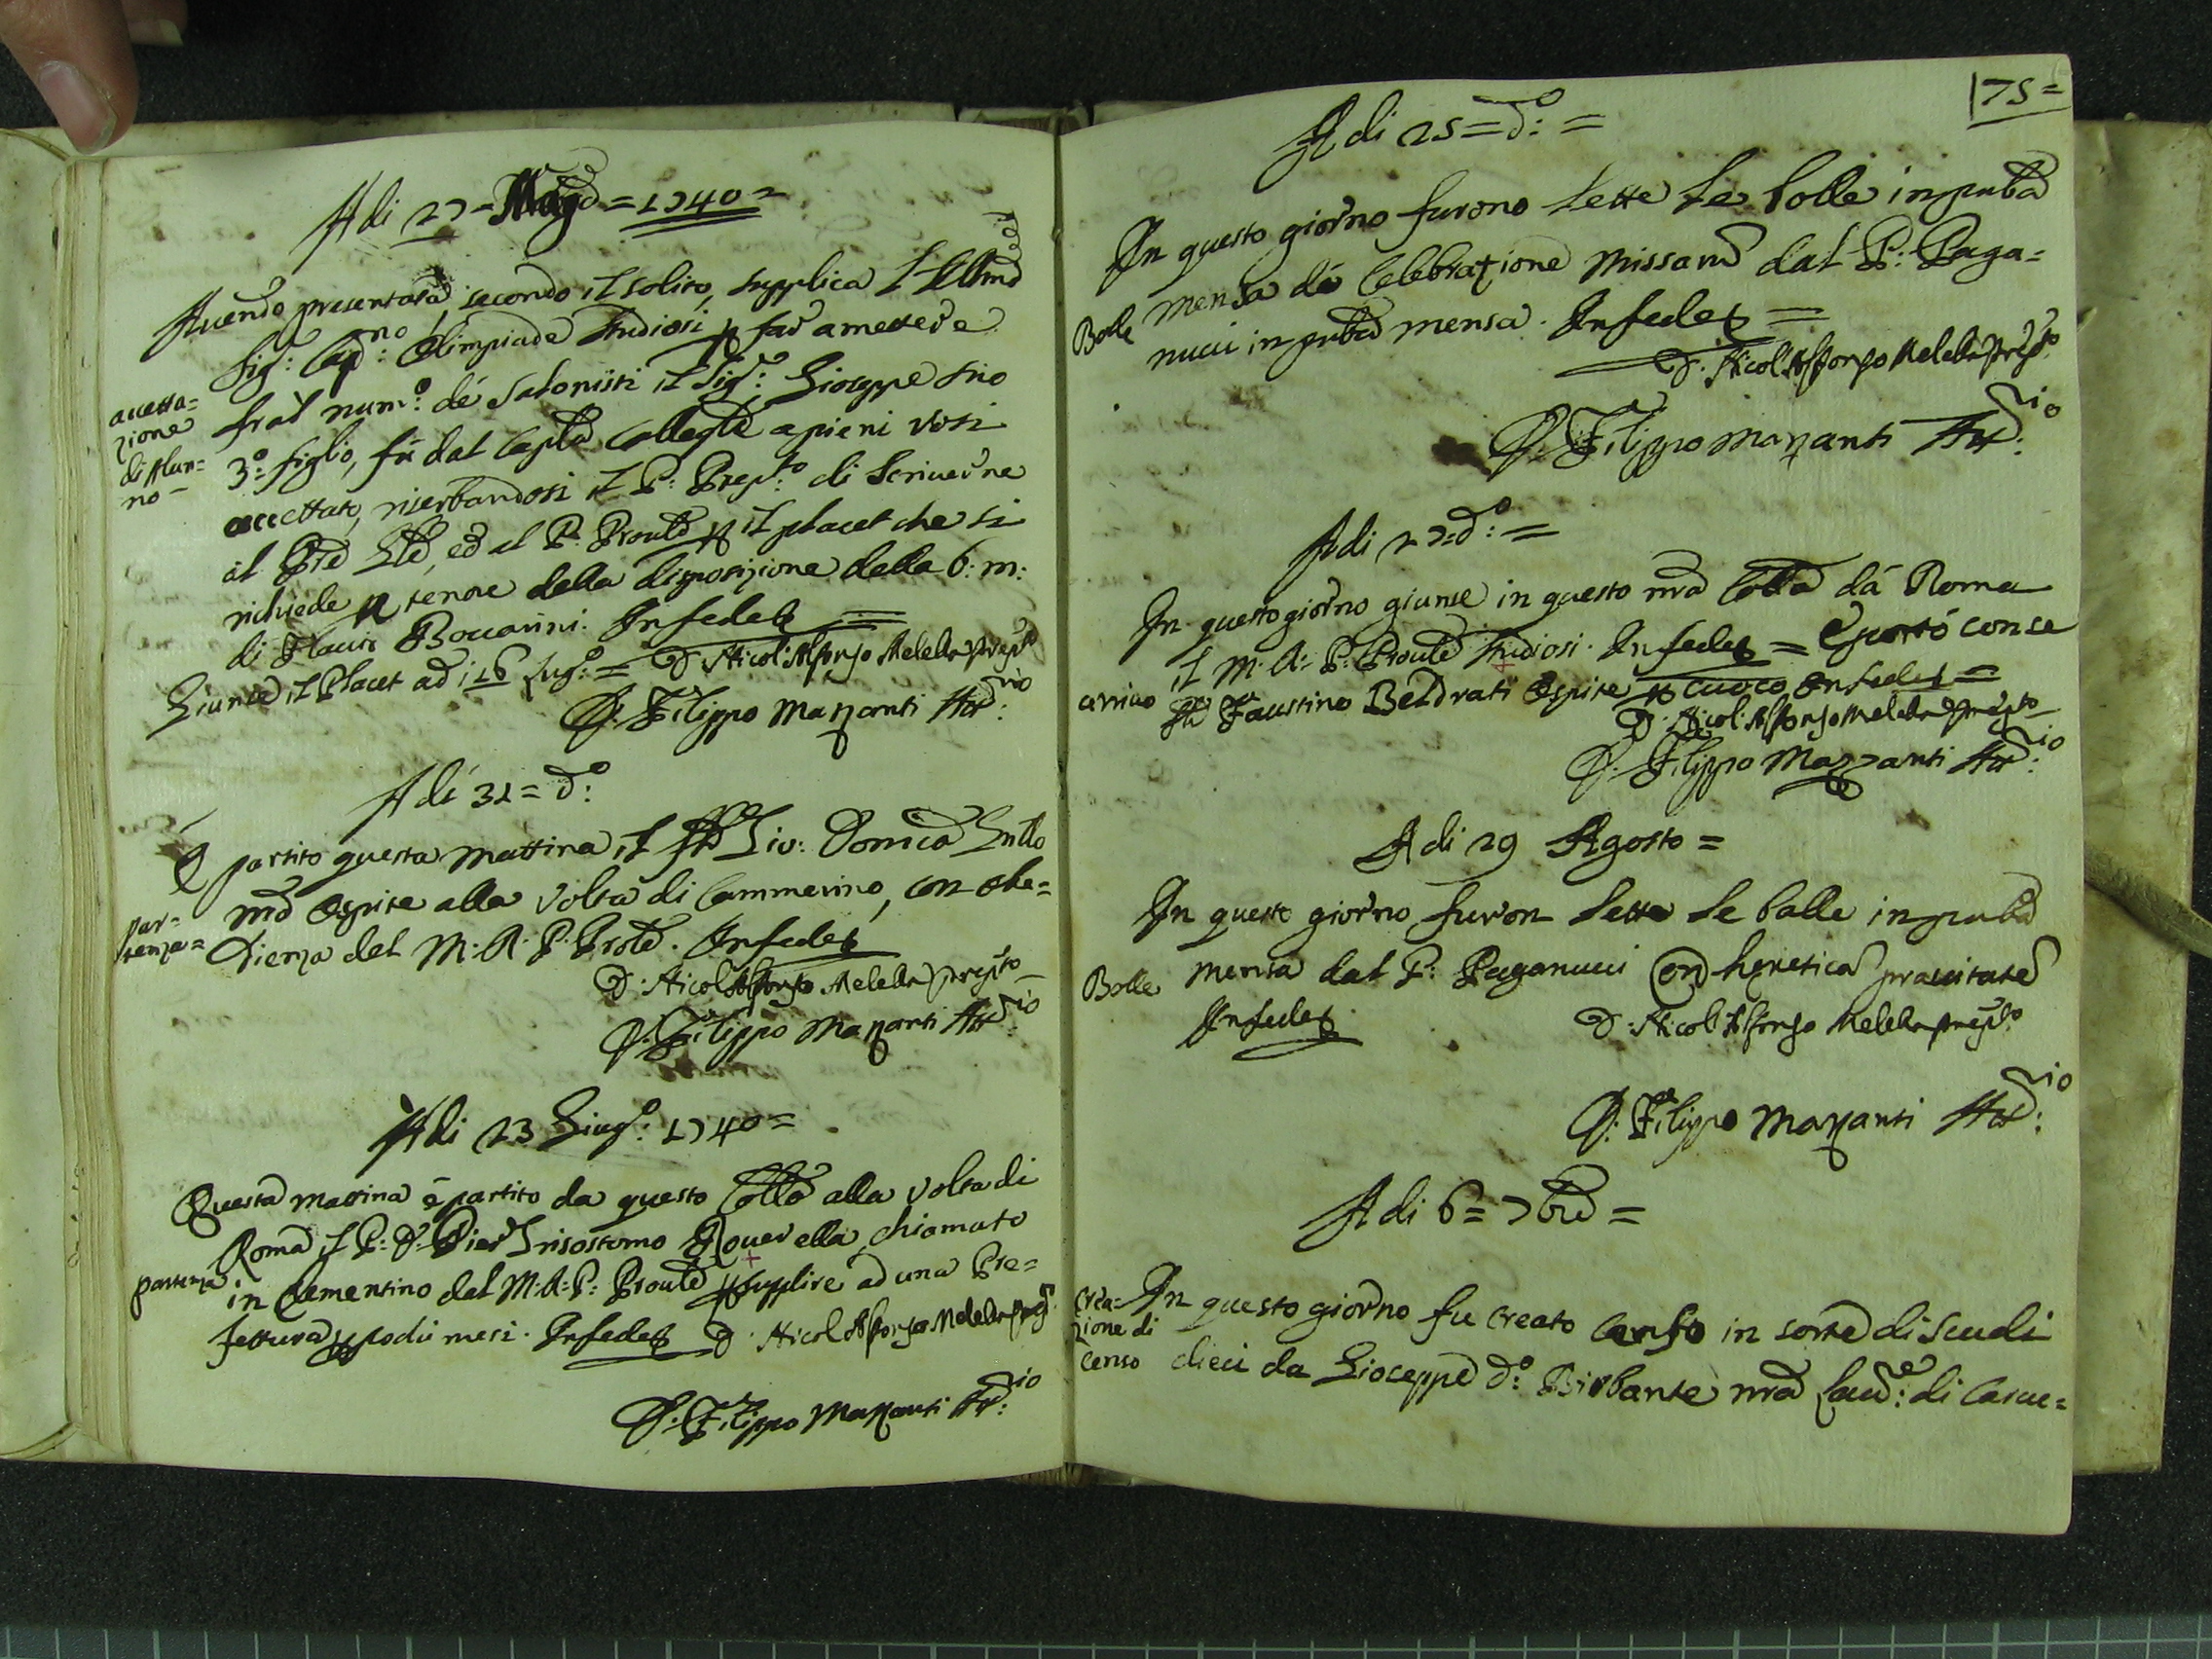 Adi 27 = Mag.o = 1740 =
Auendo presentata, secondo il solito, supplica l'Illmo
Sig.r Cap.no Olimpiade Studiosi p far amettere
accetta=
zione
di Alun=
no =
fral num.o dé Salonisti il Sig.r Gioseppe suo
3.o figlio, fù dal Caplo Collegle a pieni voti
accettato, riserbandosi il P: Prep.to di scriuerne
al Pre Gle, ed al P. Proule p il placet che si
richiede p tenore della disposizione della b: m:
di Flauio Boccarini. Infedeg =
Giunse il Placet adi 16 Lug.o = D. Nicol: Alfonso Melella Prep.to
D. Filippo Mazzanti Att.rio
Adi 31 = d.o
È partito questa mattina il Fr̃e Gio: Domico Gullo
par=
tenza =
nr̃o Ospite alla volta di Cammerino, con obe=
dienza del M. R. P. Prole. Infedeg
D. Nicol Alfonso Melella Prep.to
D. Filippo Mazzanti Att.rio
Adi 23 Giug.o 1740 =
Questa mattina è partito da questo Collo alla volta di
Roma il P: D. Pier Grisostomo Rouerella, chiamato
partenza
in Clementino dal M. R. P: Proule p supplire ad una Pre=
fettura p podii mesi. Infedeg D. Nicol Alfonso Melella Prep.
D. Filippo Mazzanti Att.rio
175 =
Adi 25 = d.o =
In questo giorno furono lette le bolle in pubca
Bolle
mensa de Celebratione Missarum dal P: Paga=
nucci in pubca mensa. Infedeg =
D. Nicol Alfonso Melella Prep.to
D. Filippo Mazzanti Att.rio
Adi 27 = d.o =
In questo giorno giunse in questo nro Collo dà Roma
arriuo
il M. R. P. Proule Studiosi. Infedeg = E portó con se
Faustino Beldrati Ospite p cuoco Infedeg =
D. Nicol. Alfonso Melella Prep.to
D. Filippo Mazzanti Att.rio
Adi 29 Agosto =
In questo giorno furon lette le bolle in pubca
Bolle
mensa dal P: Paganucci heretica prauitate
Infedeg.
D. Nicol Alfonso Melella Prep.to
D. Filippo Mazzanti Att.rio
Adi 6 = 7bre =
Crea=
zione di
censo
In questo giorno fu creato Censo in sorte di scudi
dieci da Gioceppe d.o Birbante nro di Casue=